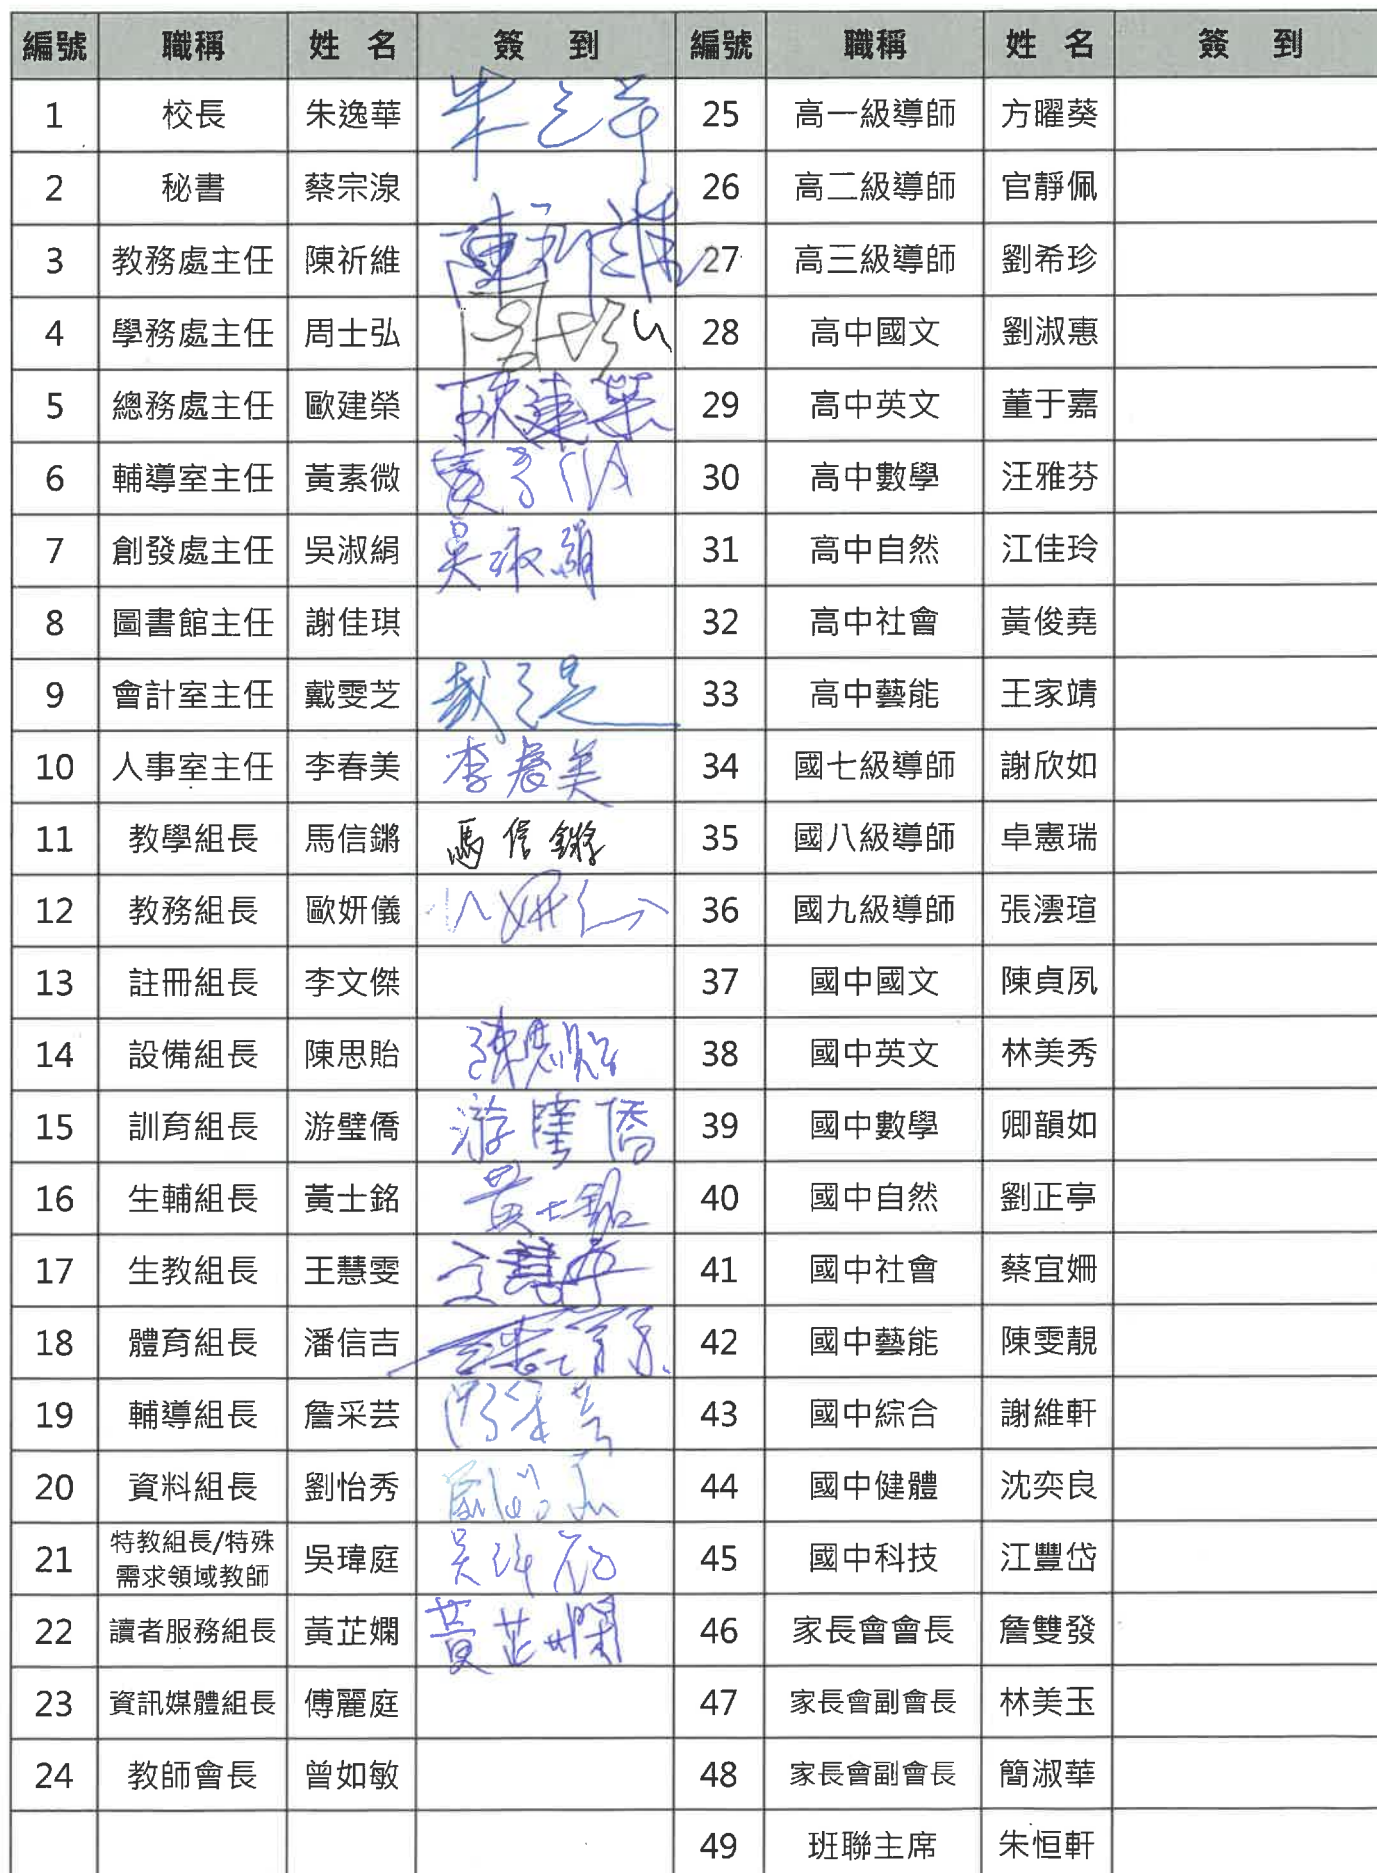 編號 職稱 姓 名 簽 到 編號 職稱 姓 名 簽 到
1 校長 朱逸華 25 高一級導師 方曜葵
2 秘書 蔡宗湶 26 高二級導師 官靜佩
3 教務處主任 陳祈維 陳祈維 27 高三級導師 劉希珍
4 學務處主任 周士弘 周士弘 28 高中國文 劉淑惠
5 總務處主任 歐建榮 歐建榮 29 高中英文 董于嘉
6 輔導室主任 黃素微 30 高中數學 汪雅芬
7 創發處主任 吳淑絹 吳淑絹 31 高中自然 江佳玲
8 圖書館主任 謝佳琪 32 高中社會 黃俊堯
9 會計室主任 戴雯芝 33 高中藝能 王家靖
10 人事室主任 李春美 李春美 34 國七級導師 謝欣如
11 教學組長 馬信鏘 馬信鏘 35 國八級導師 卓憲瑞
12 教務組長 歐妍儀 36 國九級導師 張澐瑄
13 註冊組長 李文傑 37 國中國文 陳貞夙
14 設備組長 陳思貽 陳思貽 38 國中英文 林美秀
15 訓育組長 游璧僑 游璧僑 39 國中數學 卿韻如
16 生輔組長 黃士銘 黃士銘 40 國中自然 劉正亭
17 生教組長 王慧雯 王慧雯 41 國中社會 蔡宜姍
18 體育組長 潘信吉 42 國中藝能 陳雯靚
19 輔導組長 詹采芸 43 國中綜合 謝維軒
20 資料組長 劉怡秀 劉怡秀 44 國中健體 沈奕良
21 特教組長/特殊需求領域教師 吳瑋庭 吳瑋庭 45 國中科技 江豐岱
22 讀者服務組長 黃芷嫻 黃芷嫻 46 家長會會長 詹雙發
23 資訊媒體組長 傅麗庭 47 家長會副會長 林美玉
24 教師會長 曾如敏 48 家長會副會長 簡淑華
49 班聯主席 朱恒軒